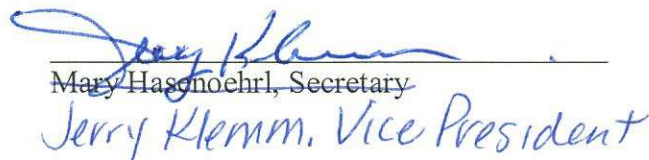 Jerry Klemm
Mary Hasenoehrl, Secretary
Jerry Klemm, Vice President